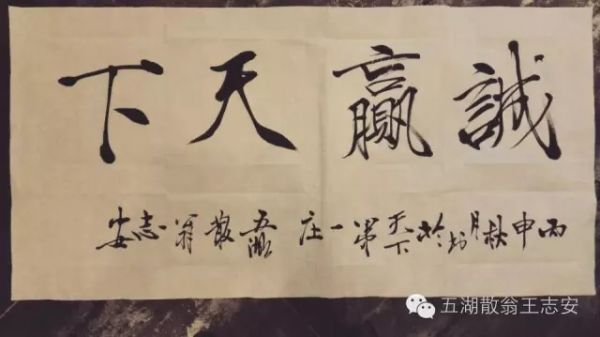 誠贏天下
丙申秋月於天下第一庄五湖散翁志安
五湖散翁王志安